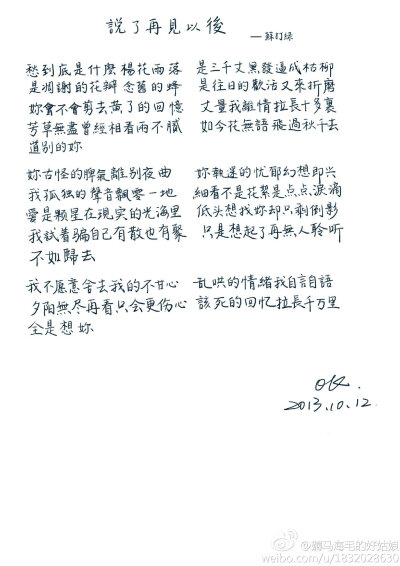 說了再見以後
——蘇打綠
愁到底是什麼 楊花雨落 是三千丈黑發逼成枯柳
是凋謝的花瓣 念舊的蜂 是往日的歡沽又來折磨
妳會不會剪去黃了的回憶 丈量我離情拉長十多裏
芳草無盡曾經相看兩不膩 如今花無語 飛過秋千去
道別的妳
妳古怪的脾氣離別夜曲 妳執迷的忧郁幻想即兴
我孤独的聲音飄零一地 細看不是花絮是点点淚滴
愛是顆星在現实的光海里 低头想找妳却只剩倒影
我試着骗自己有散也有聚 只是想起了再無人聆听
不如歸去
我不愿意舍去我的不甘心 乱哄的情緒我自言自語
夕陽無尽再看只会更伤心 該死的回忆拉長千万里
全是想妳
2013.10.12.
@鹏马海毛的好姑娘
weibo.com/u/1832028630